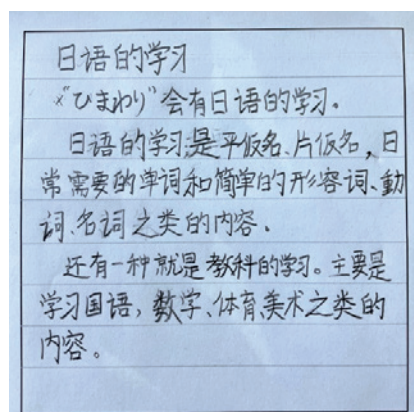 日语的学习
"ひまわり"会有日语的学习。
日语的学习是平仮名、片仮名，日
常需要的单词和简单的形容词、動
词、名词之类的内容。
还有一种就是教科的学习。主要是
学习国语，数学、体育美术之类的
内容。